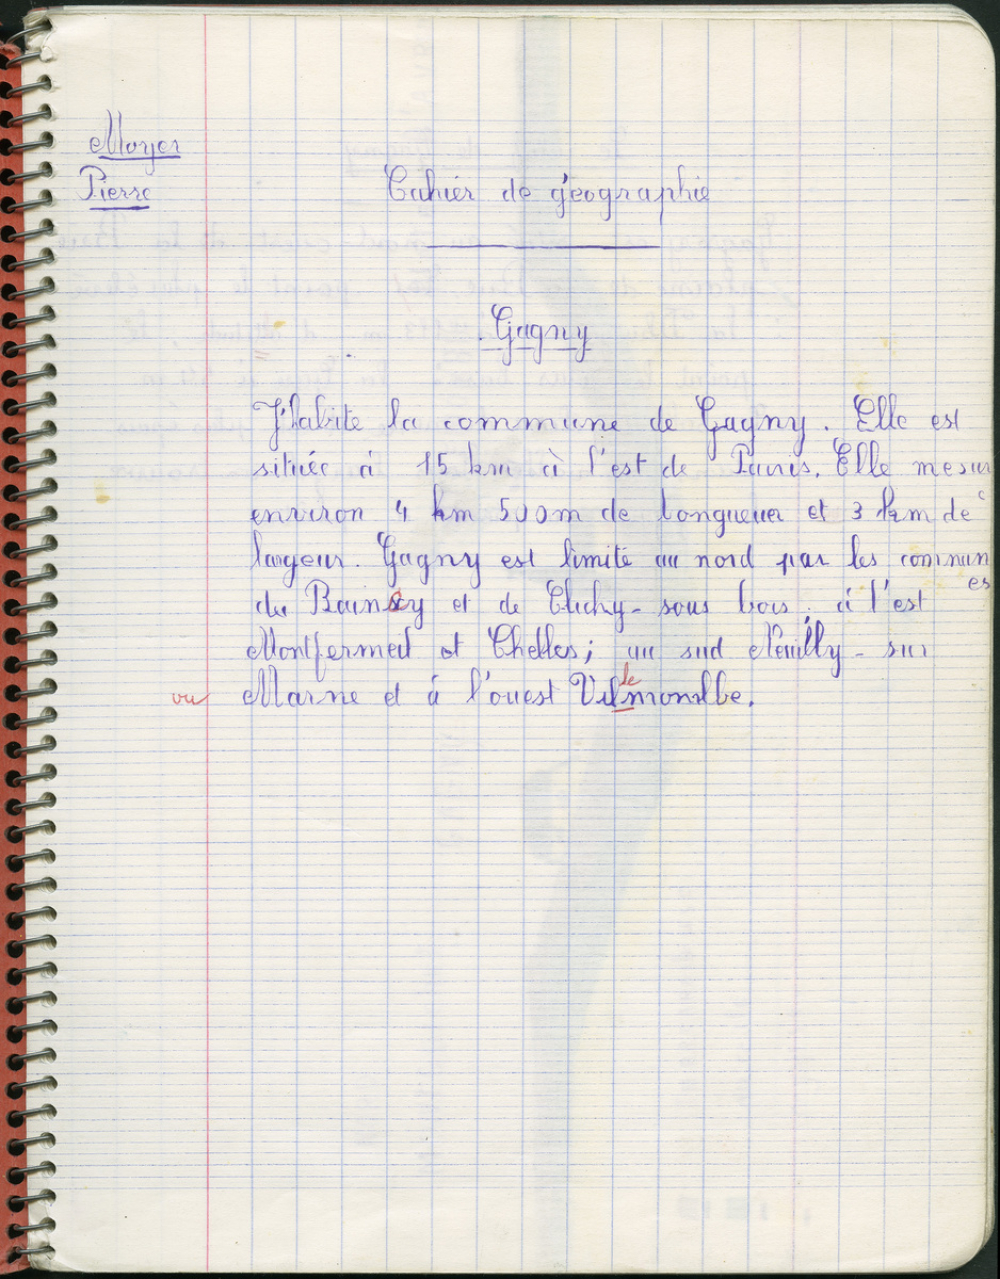 Moyer
Pierre
Cahier de géographie
Gagny
J'habite la commune de Gagny. Elle est
située à 15 km à l'est de Paris. Elle mesur
environ 4 km 500m de longueur et 3 km de
largeur. Gagny est limité au nord par les commun
es
du Raincy et de Clichy-sous bois; à l'est
Montfermeil et Chelles; au sud Neuilly-sur
vu Marne et à l'ouest Villemonble.